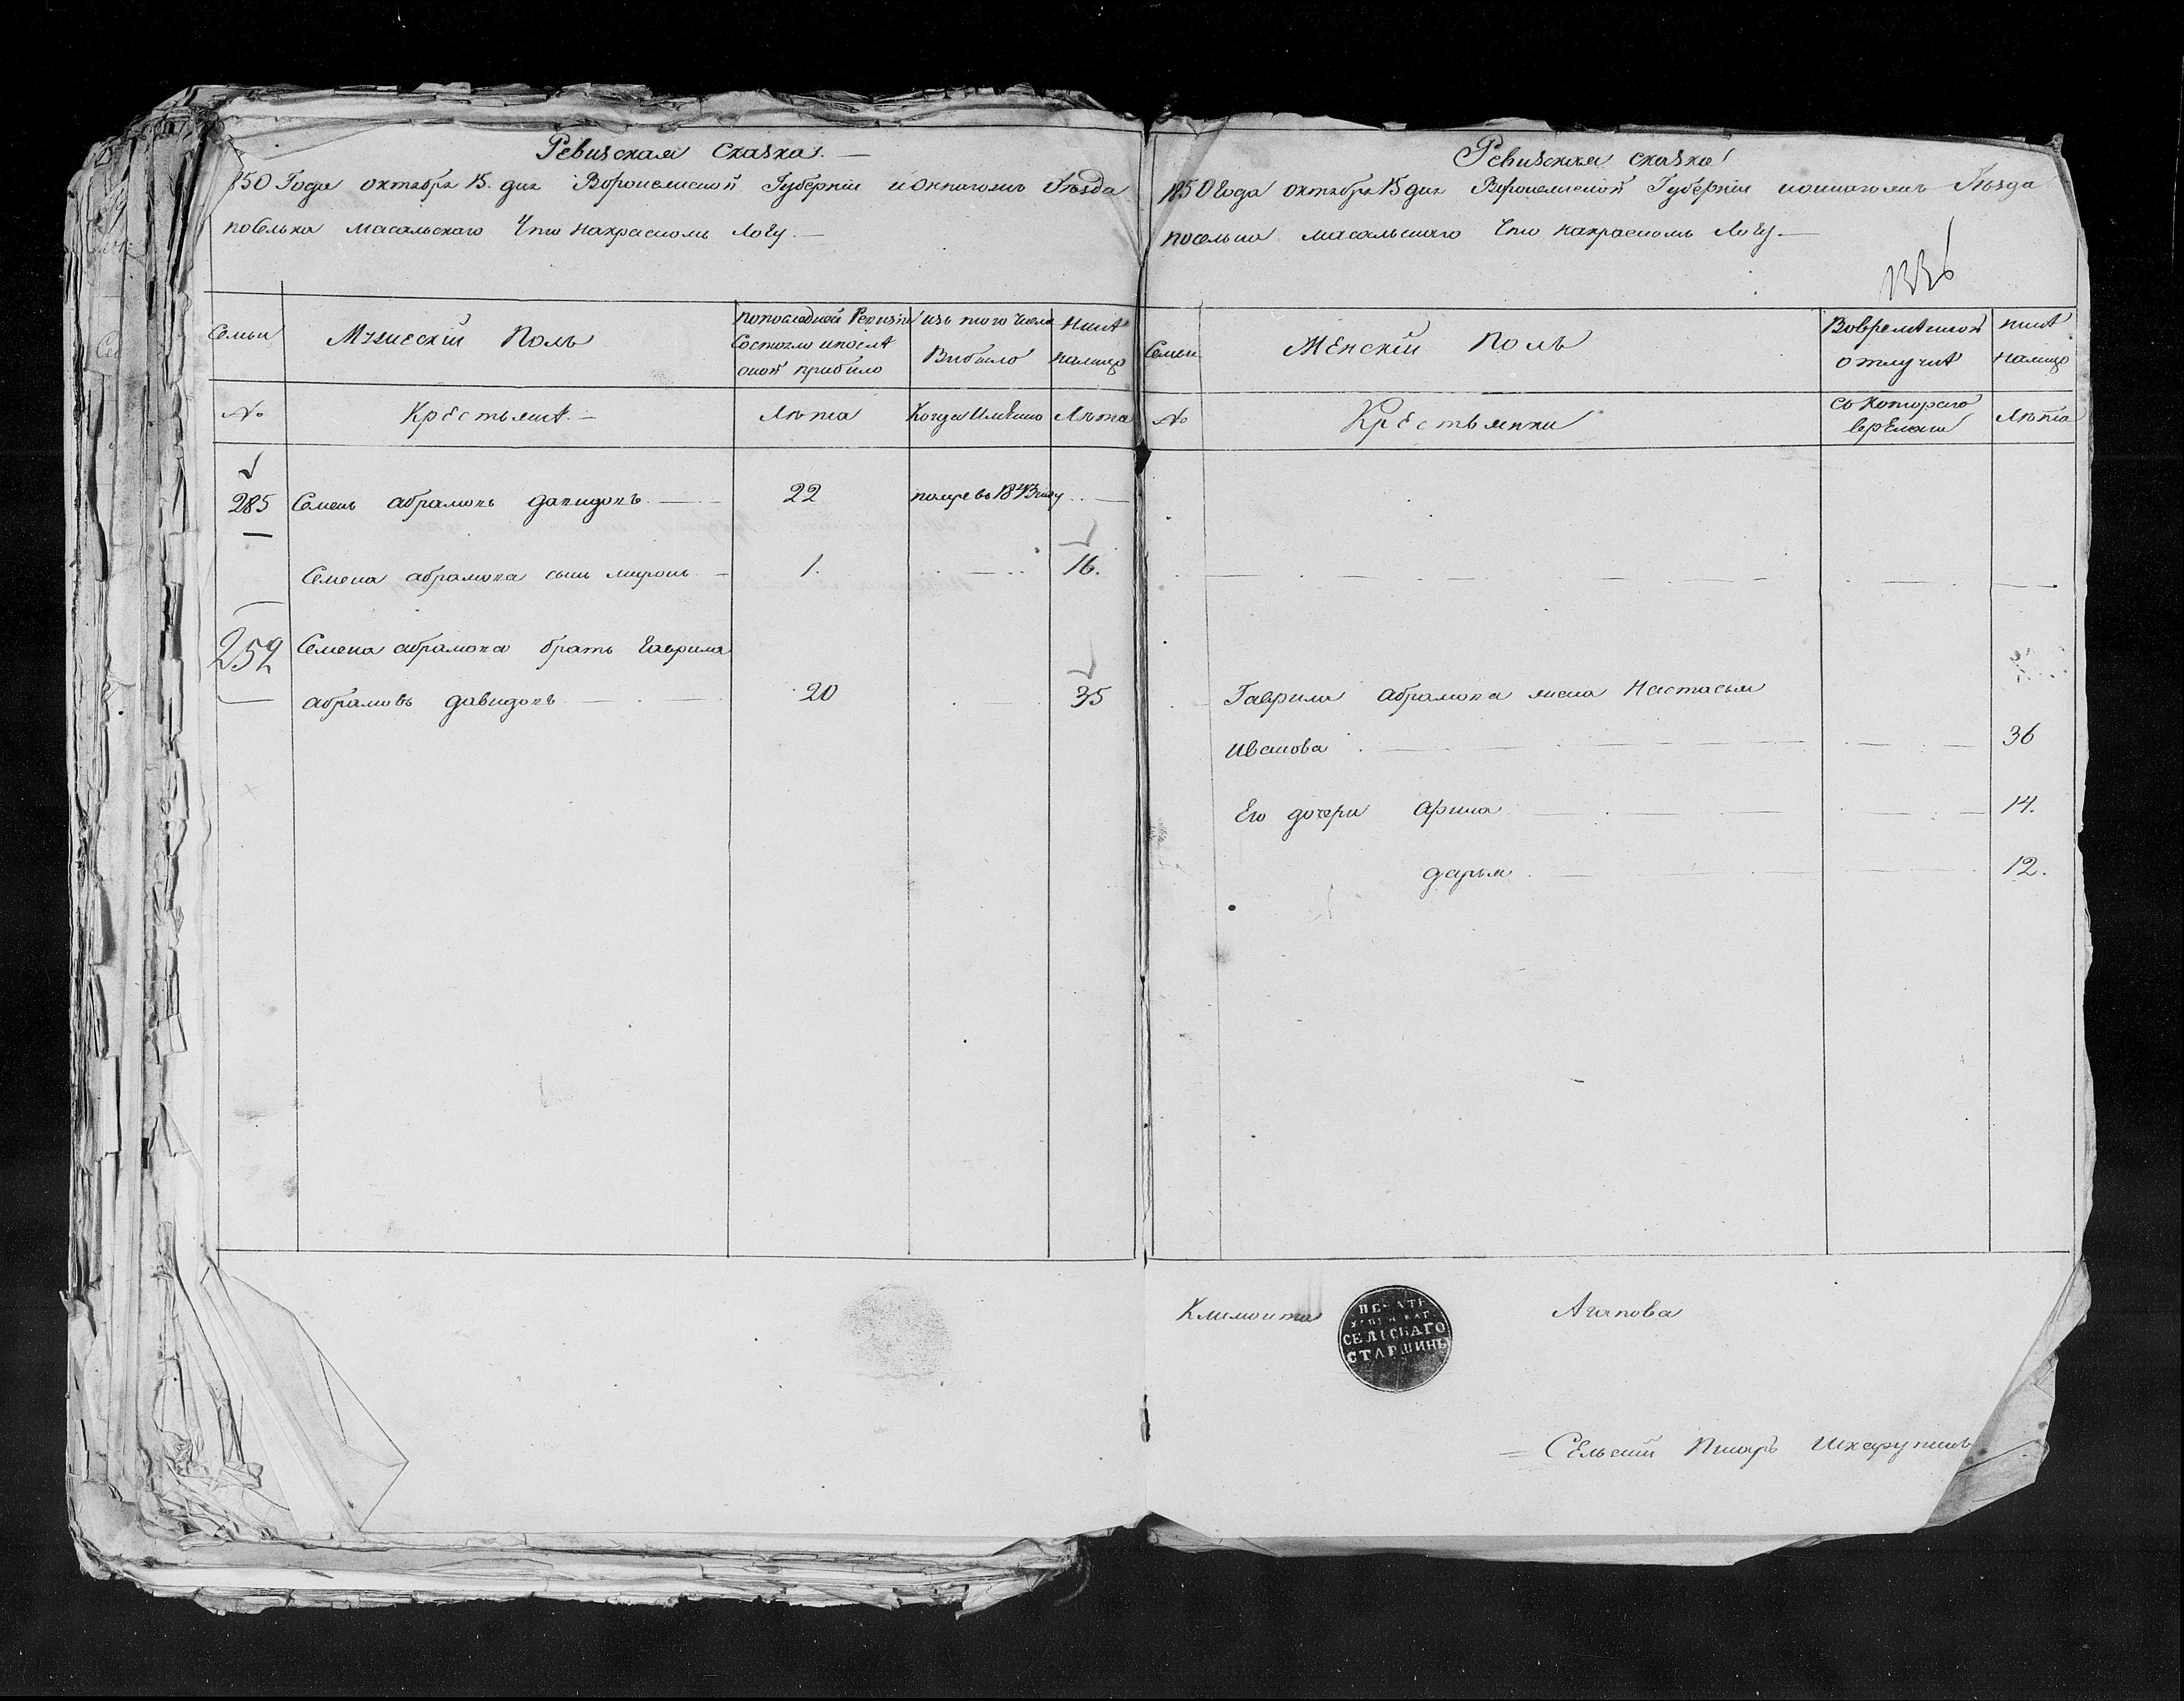 Ревизская Сказка.
1850 Года октября 15. дня Воронежской Губернiи Уѣзда
поселька Масальскаго Что накрасномъ Логу.
Семьи
Мужескiй Полъ
попоследней Ревизiи
Состояло ипослѣ
оной прибыло
изъ того числа
Выбыло
Нынѣ
налицо
№
Крестьянѣ.
Лѣта
Когда Имѣнно
Лѣта
285
Семенъ абрамовъ давидовъ.
22
померъ въ 1843 году
Семена абрамова сынъ миронъ.
1.
16.
252
Семена абрамова братъ Гаврила
абрамовъ давидовъ
20
35
Ревизская сказка
1850 Года октября 15 дня Воронежской Губернiи Уѣзда
поселька масальскаго Что накрасномъ Логу.
Семьи
Женскiй Полъ
Вовременной
отлучкѣ
нынѣ
налицо
№
Крестьянки
Съ Котораго
времени
Лѣта
Гаврила абрамова жена Настасья
Иванова
36
Его дочери Арина
14.
дарья
12.
Климонта
ПЕЧАТЬ
СЕЛЬСКАГО
СТАРШИНЫ
Агапова
Сельскiй Писарь